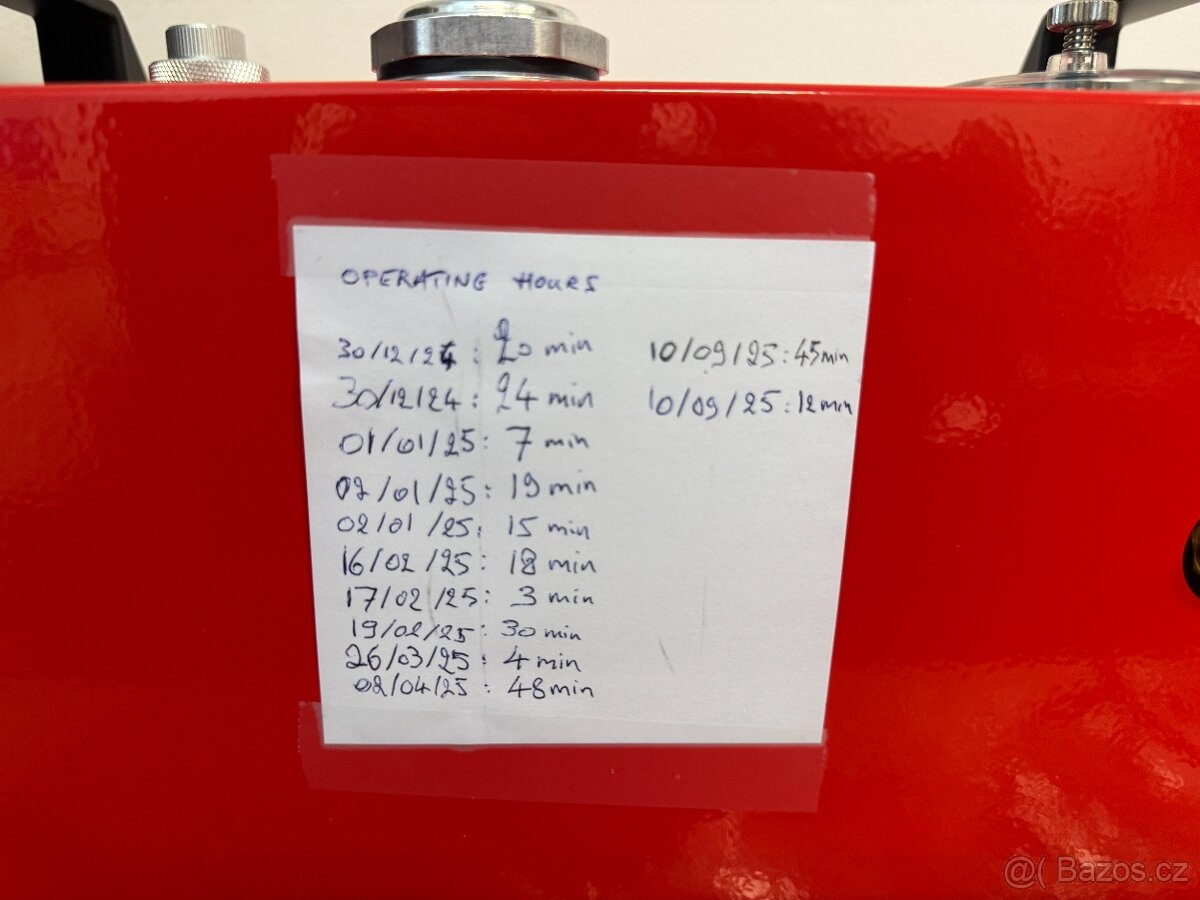 OPERATING HOURS
30/12/24: 20 min
30/12/24: 24 min
01/01/25: 7 min
02/01/25: 19 min
02/01/25: 15 min
16/02/25: 18 min
17/02/25: 3 min
19/02/25: 30 min
26/03/25: 4 min
02/04/25: 48 min
10/09/25: 45 min
10/09/25: 12 min
@( Bazos.cz